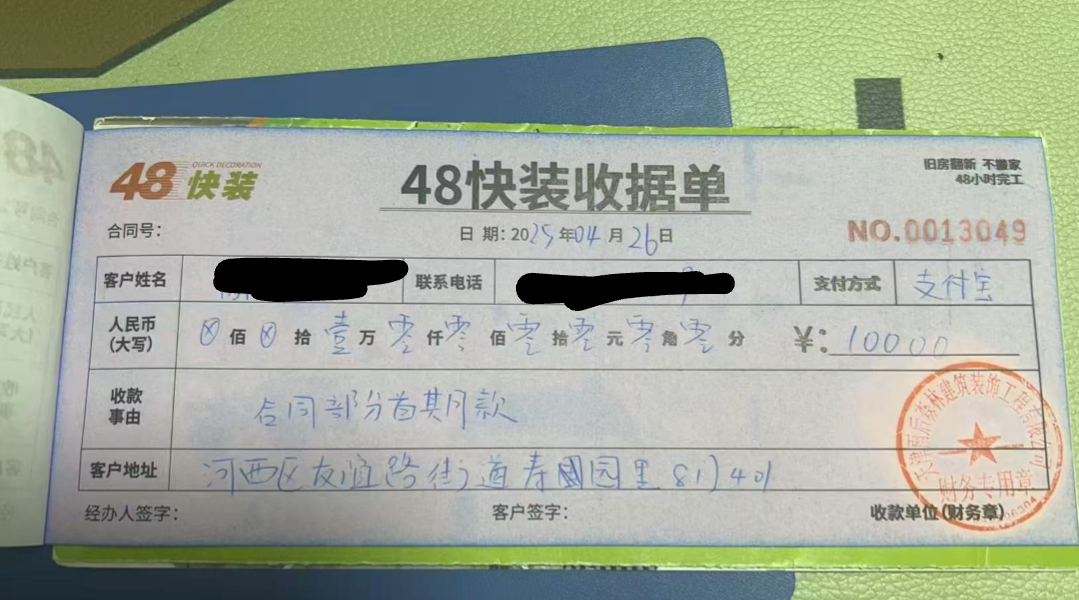 QUICK DECORATION
48快装
48快装收据单
旧房翻新 不搬家
48小时完工
合同号:
日 期: 2025年04月26日
NO.0013049
客户姓名 联系电话 支付方式 支付宝
人民币(大写) ⊗佰⊗拾壹万零仟零佰零拾零元零角零分 ¥: 10000
收款事由 合同部分首期款
客户地址 河西区友谊路街道寿园里 401
经办人签字: 客户签字: 收款单位(财务章)
建筑装饰工程有限公司
财务专用章